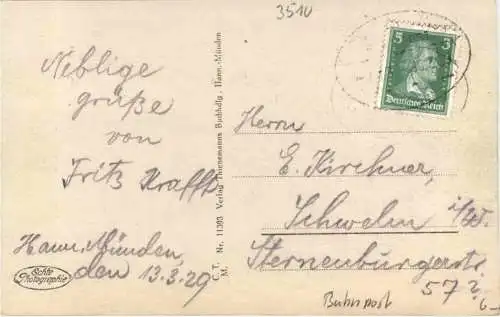 3510
Neblige
grüße
von
Fritz Krafft
Hann. Münden,
den 13.3.29
Echte
Photographie
C. T. Nr. 11393 Verlag Thiersemanns Buchhdlg., Hann.-Münden
M.
5 3
Deutsches Reich
Herrn
E. Kirchner,
Schwelm i/W.
Sternenburgerstr.
57?
Bahnpost